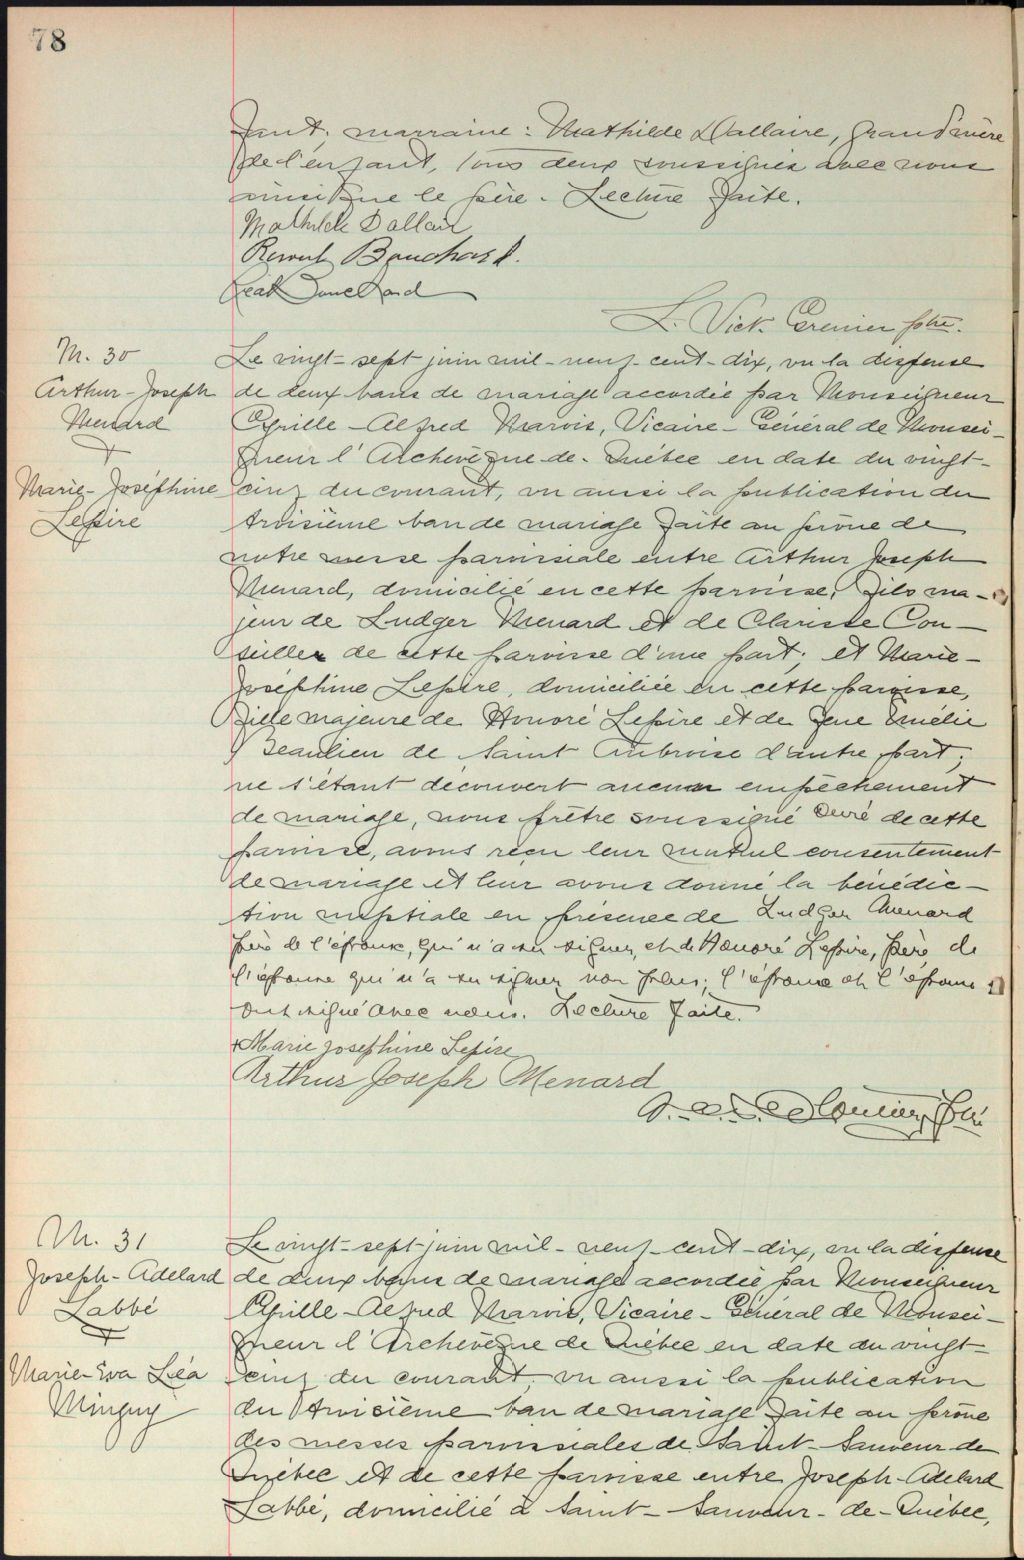 78
fant; marraine: Mathilde Dallaire, grand'mère
de l'enfant, tous deux soussignés avec nous
ainsi que le père. Lecture faite.
Mathilde Dallair
Bouchard.
Bouchard
L. Vict. Grenier ptre.
M. 30
Arthur-Joseph
Menard
+
Marie-Joséphine
Lepire
Le vingt-sept juin mil-neuf-cent-dix, vu la dispense
de deux bans de mariage accordée par Monseigneur
Cyrille-Alfred Marois, Vicaire-Général de Monsei-
gneur l'Archevêque de Québec en date du vingt-
cinq du courant, vu aussi la publication du
troisième ban de mariage faite au prône de
notre messe paroissiale entre Arthur Joseph
Menard, domicilié en cette paroisse, fils ma-
jeur de Ludger Menard et de Clarisse Cou-
siller de cette paroisse d'une part; et Marie-
Joséphine Lepire, domiciliée en cette paroisse,
fille majeure de Honoré Lepire et de feue Emélie
Beaulieu de Saint Ambroise d'autre part;
ne s'étant découvert aucun empêchement
de mariage, nous prêtre soussigné curé de cette
paroisse, avons reçu leur mutuel consentement
de mariage et leur avons donné la bénédic-
tion nuptiale en présence de Ludger Menard
père de l'époux, qui n'a su signer, et de Honoré Lepire, père de
l'épouse qui n'a su signer non plus; l'époux et l'épouse
ont signé avec nous. Lecture faite.
+Marie Josephine Lepire
Arthur Joseph Menard
ptre
M. 31
Joseph-Adelard
Labbé
+
Marie-Eva Léa
Minguy
Le vingt-sept juin mil-neuf-cent-dix, vu la dispense
de deux bans de mariage accordée par Monseigneur
Cyrille-Alfred Marois, Vicaire-Général de Monsei-
gneur l'Archevêque de Québec en date du vingt-
cinq du courant, vu aussi la publication
du troisième ban de mariage faite au prône
des messes paroissiales de Saint-Sauveur de
Québec et de cette paroisse entre Joseph-Adelard
Labbé, domicilié à Saint-Sauveur-de-Québec,